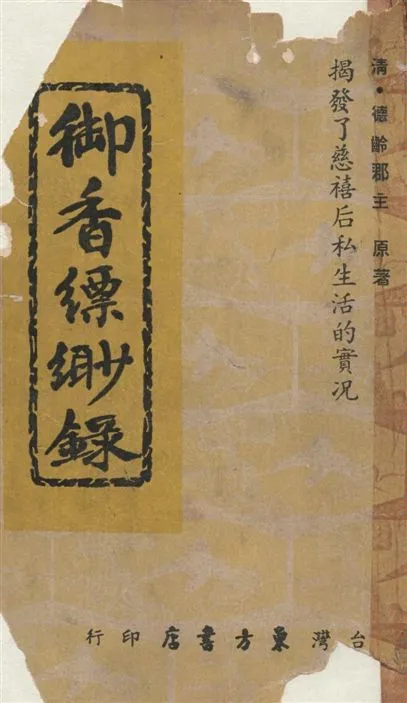 清•德齡郡主 原著
揭發了慈禧后私生活的實況
御香縹緲錄
台灣東方書店印行